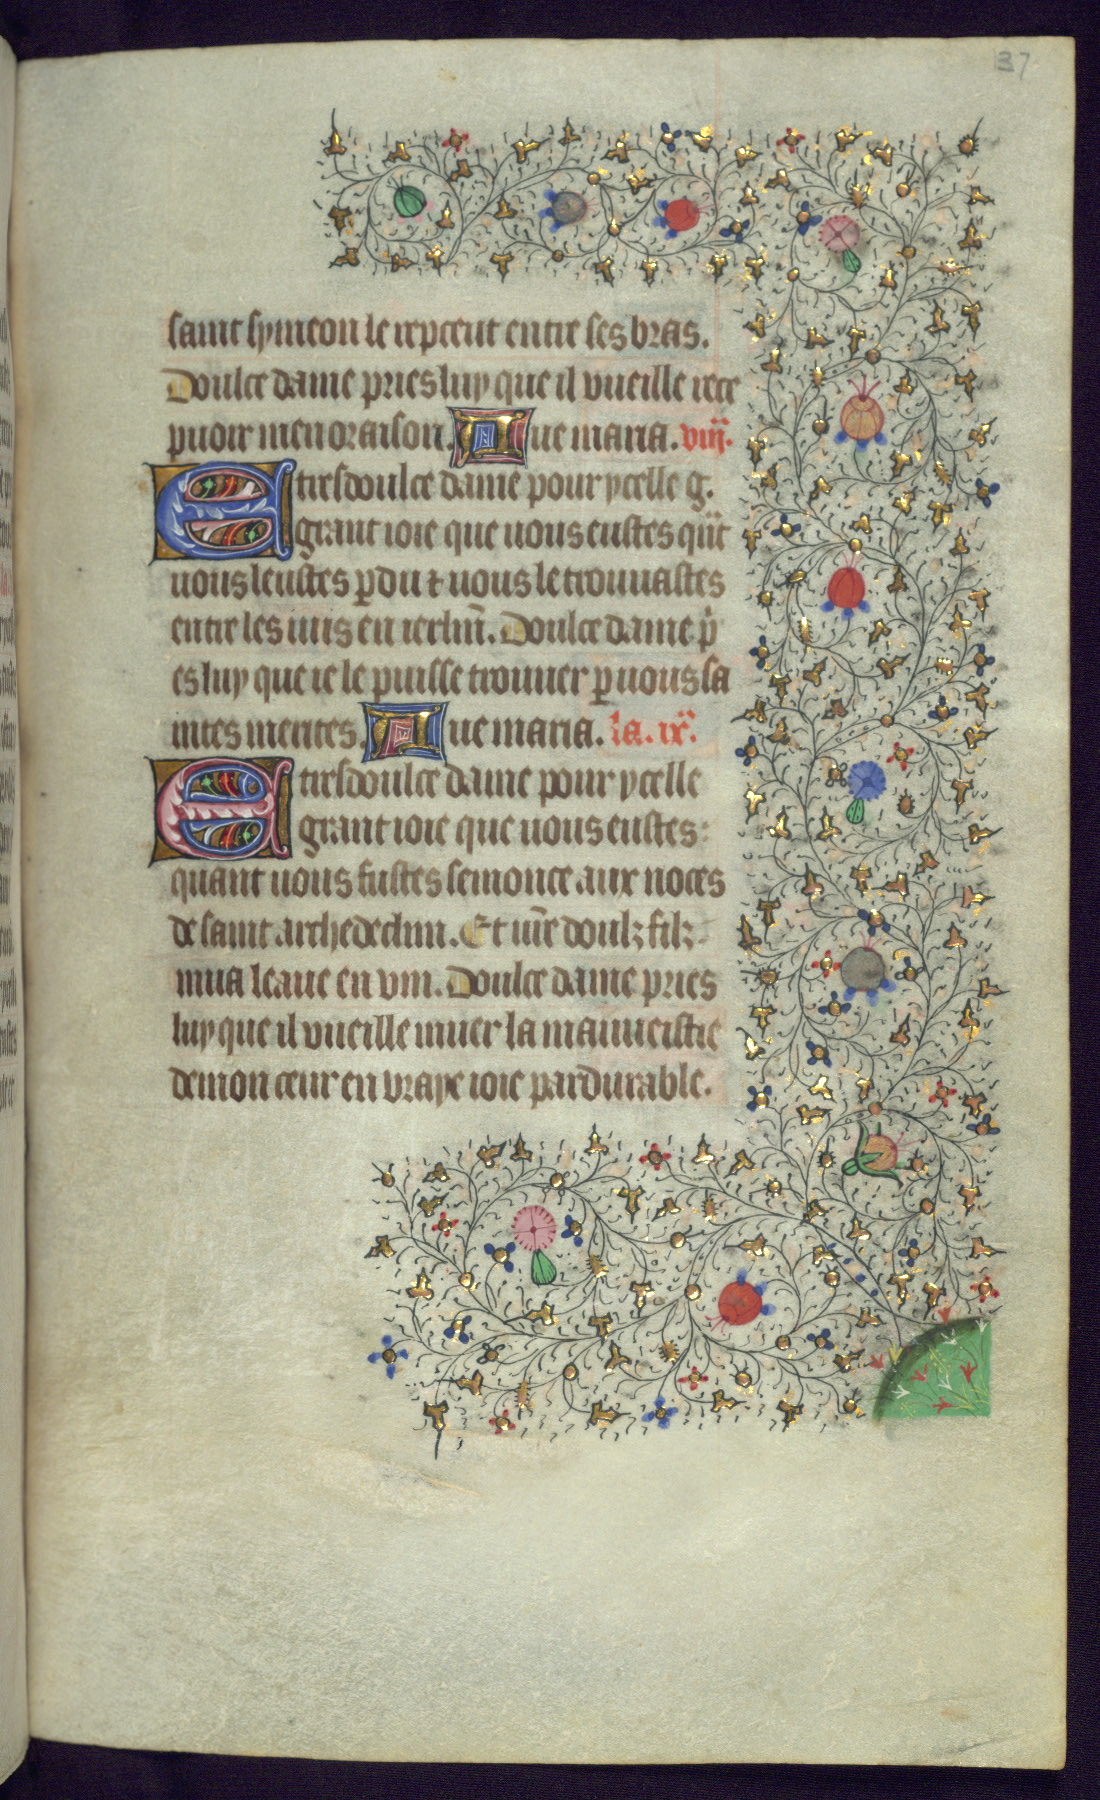 37
saint symeon le recpceut entre ses bras.
Doulce dame pries luy que il vueille rece
puoir men oraison. Aue maria. viij.
E tresdoulce dame pour ycelle g.
grant ioie que uous eustes qu̅t
uous leustes ꝑdu ⁊ uous le trouuastes
entre les iuis en ierlm̅. Doulce dame pͥ
es luy que ie le puisse trouuer ꝑ uous sa
intes merites. Aue maria. la. ix.
E tresdoulce dame pour ycelle
grant ioie que uous eustes
quant uous fustes semonce aux noces
de saint archedeclin. Et ur̅e doulz filz
mua leaue en vin. Doulce dame pries
luy que il vueille muer la mauueistie
de mon cœur en vraye ioie pardurable.